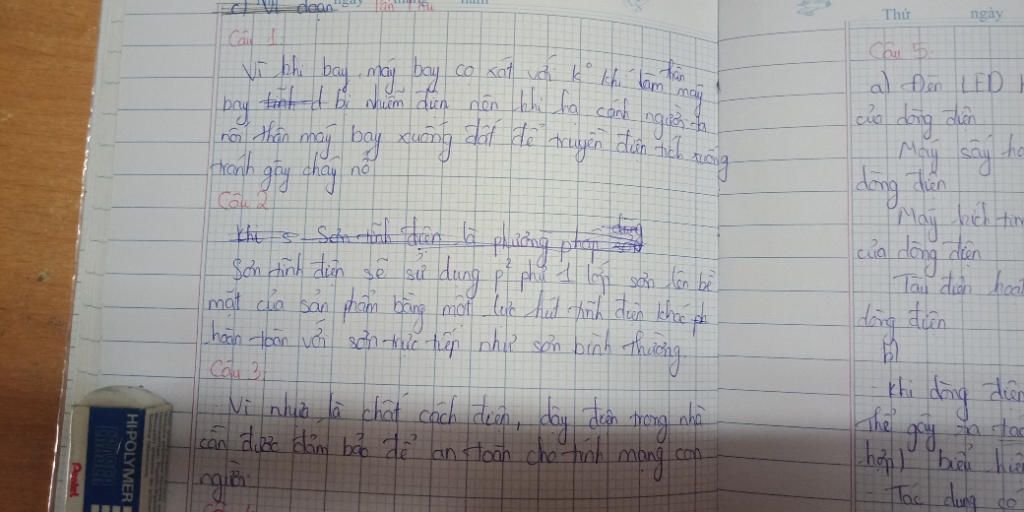 c) Vì đoạn
Câu 1
Vì khi bay, máy bay cọ xát với k° khí làm thân máy
bay bị nhiễm điện nên khi hạ cánh người ta
nối thân máy bay xuống đất để truyền điện tích xuống
tránh gây cháy nổ
Câu 2
Khi s Sơn tĩnh điện là phương pháp dùng
Sơn tĩnh điện sẽ sử dụng p² phủ 1 lớp sơn lên bề
mặt của sản phẩm bằng một lực hút tĩnh điện khác
hoàn toàn với sơn trực tiếp như sơn bình thường.
Câu 3
Vì nhựa là chất cách điện, dây điện trong nhà
cần được đảm bảo để an toàn cho tính mạng con
người.
HI-POLYMER
Pentel
Thứ ngày
Câu 5
a) Đèn LED
của dòng điện
Máy sấy
dòng điện
Máy kích tim
của dòng điện
Tàu điện hoạt
dòng điện
b)
- Khi dòng điện
thể gây ra tác
hợp) biểu hiện
- Tác dụng có